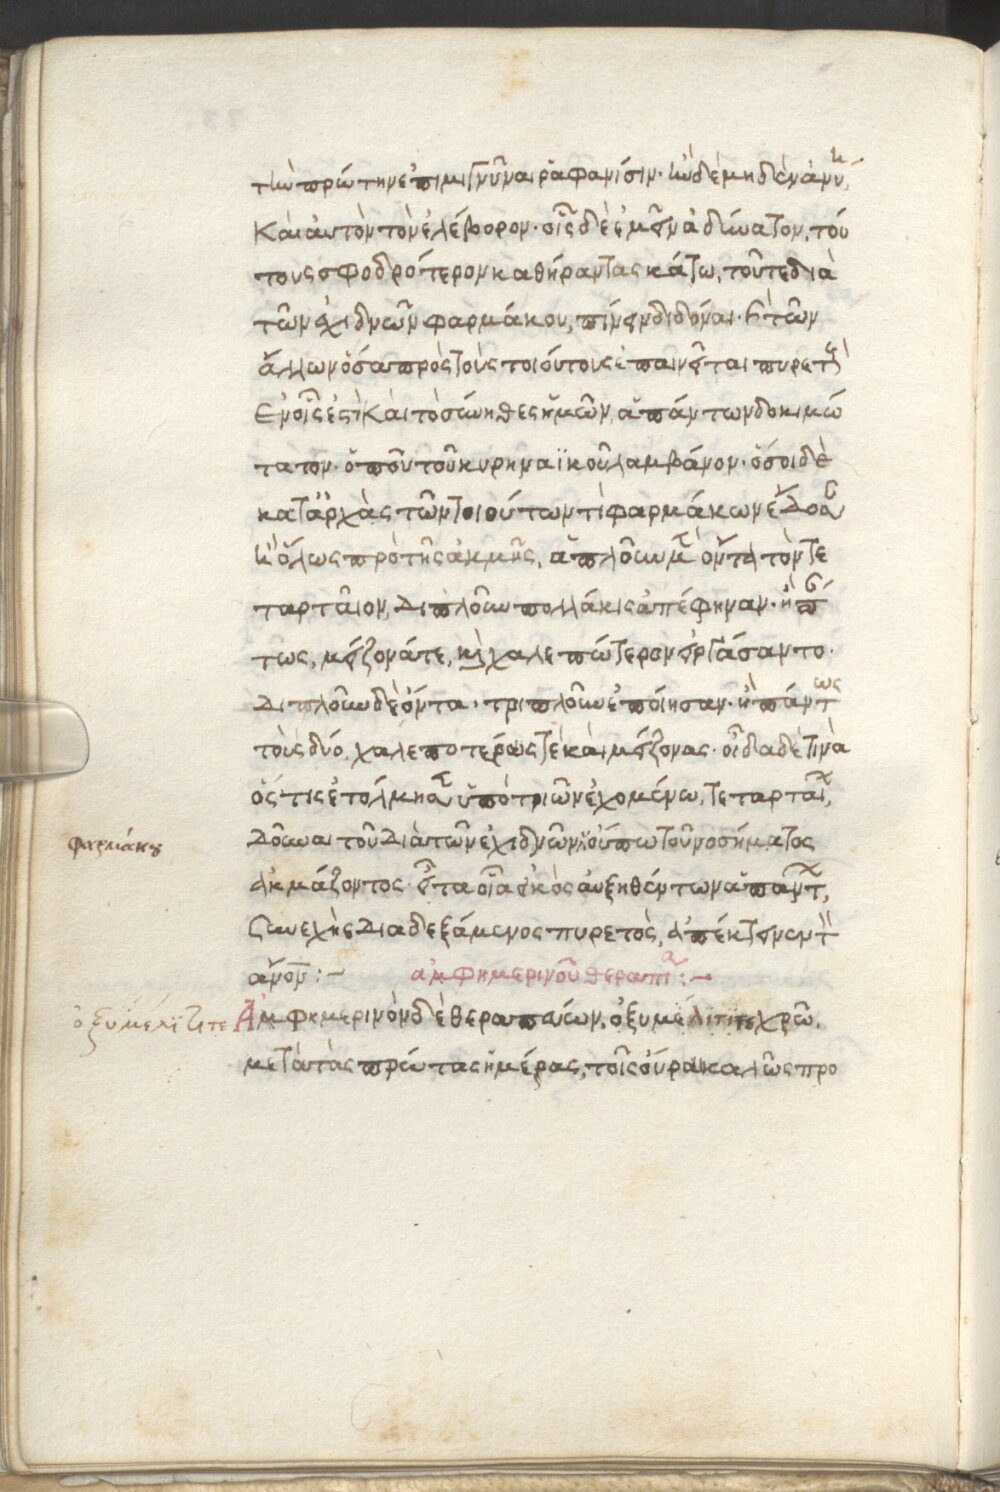 τὴν πρώτην ἐπιμιγνύναι ῥαφανίσιν· εἰ δὲ μηδὲν ἀνύει,
Καὶ αὐτὸν τὸν ἐλέβορον· οἷς δὲ ἐμεῖν ἀδύνατον, τού
τους σφοδρότερον καθήραντας κάτω, τοῦτε διὰ
τῶν ἐχιδνῶν φαρμάκου, πίνειν διδόναι· καὶ τῶν
ἄλλων ὅσα πρὸς τοὺς τοιούτους ἐπαινεῖται πυρετούς
Ἐν οἷς ἐστὶ Καὶ τὸ σύνηθες ἡμῶν, ἁπάντων δοκιμώ
τατον· ὀποῦ τοῦ κυρηναϊκοῦ λαμβάνον· ὅσοι δὲ
κατ' ἀρχὰς τῶν τοιούτων τὶ φαρμάκων ἔδοσαν
ἢ ὅλως πρὸ τῆς ἀκμῆς, ἁπλοῦν μὲν ὄντα τὸν τε
ταρταῖον, διπλοῦν πολλάκις ἀπέφηναν· ἢ πάν
τως, μείζονά τε, καὶ χαλεπώτερον εἰργάσαντο·
Διπλοῦν δὲ ὄντα, τριπλοῦν ἐποίησαν· ἢ πάντως
τοὺς δύο, χαλεποτέρους τὲ καὶ μείζονας· οἶδα δὲ τινὰ
ὅς τις ἐτόλμησεν ὑπὸ τριῶν ἐχομένω, τεταρταίων,
φαρμάκου
Δοῦναι τοῦ διὰ τῶν ἐχιδνῶν, οὔπω τοῦ νοσήματος
ἀκμάζοντος· εἶτα οἷα εἰκὸς αὐξηθέντων ἁπάντων,
Συνεχὴς διαδεξάμενος πυρετὸς, ἀπέκτεινεν τὸν
ἄνον:~ ἀμφημερινοῦ θεραπεία:~
ὀξυμέλιτί τε
Ἀμφημερινὸν δὲ θεραπεύων, ὀξυμέλιτί τε χρῶ,
μετὰ τὰς πρώτας ἡμέρας, τοῖς οὖρα καλῶς προ